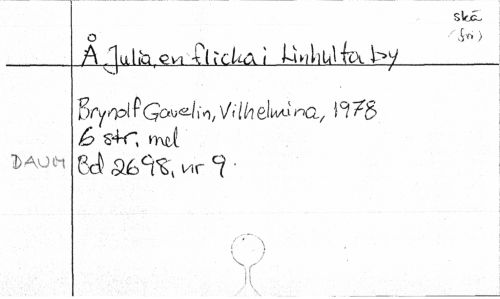 skä
(fri)
Å Julia, en flicka i Linhulta by
Brynolf Gavelin, Vilhelmina, 1978
6 str, mel
DAUM Bd 2698, nr 9.